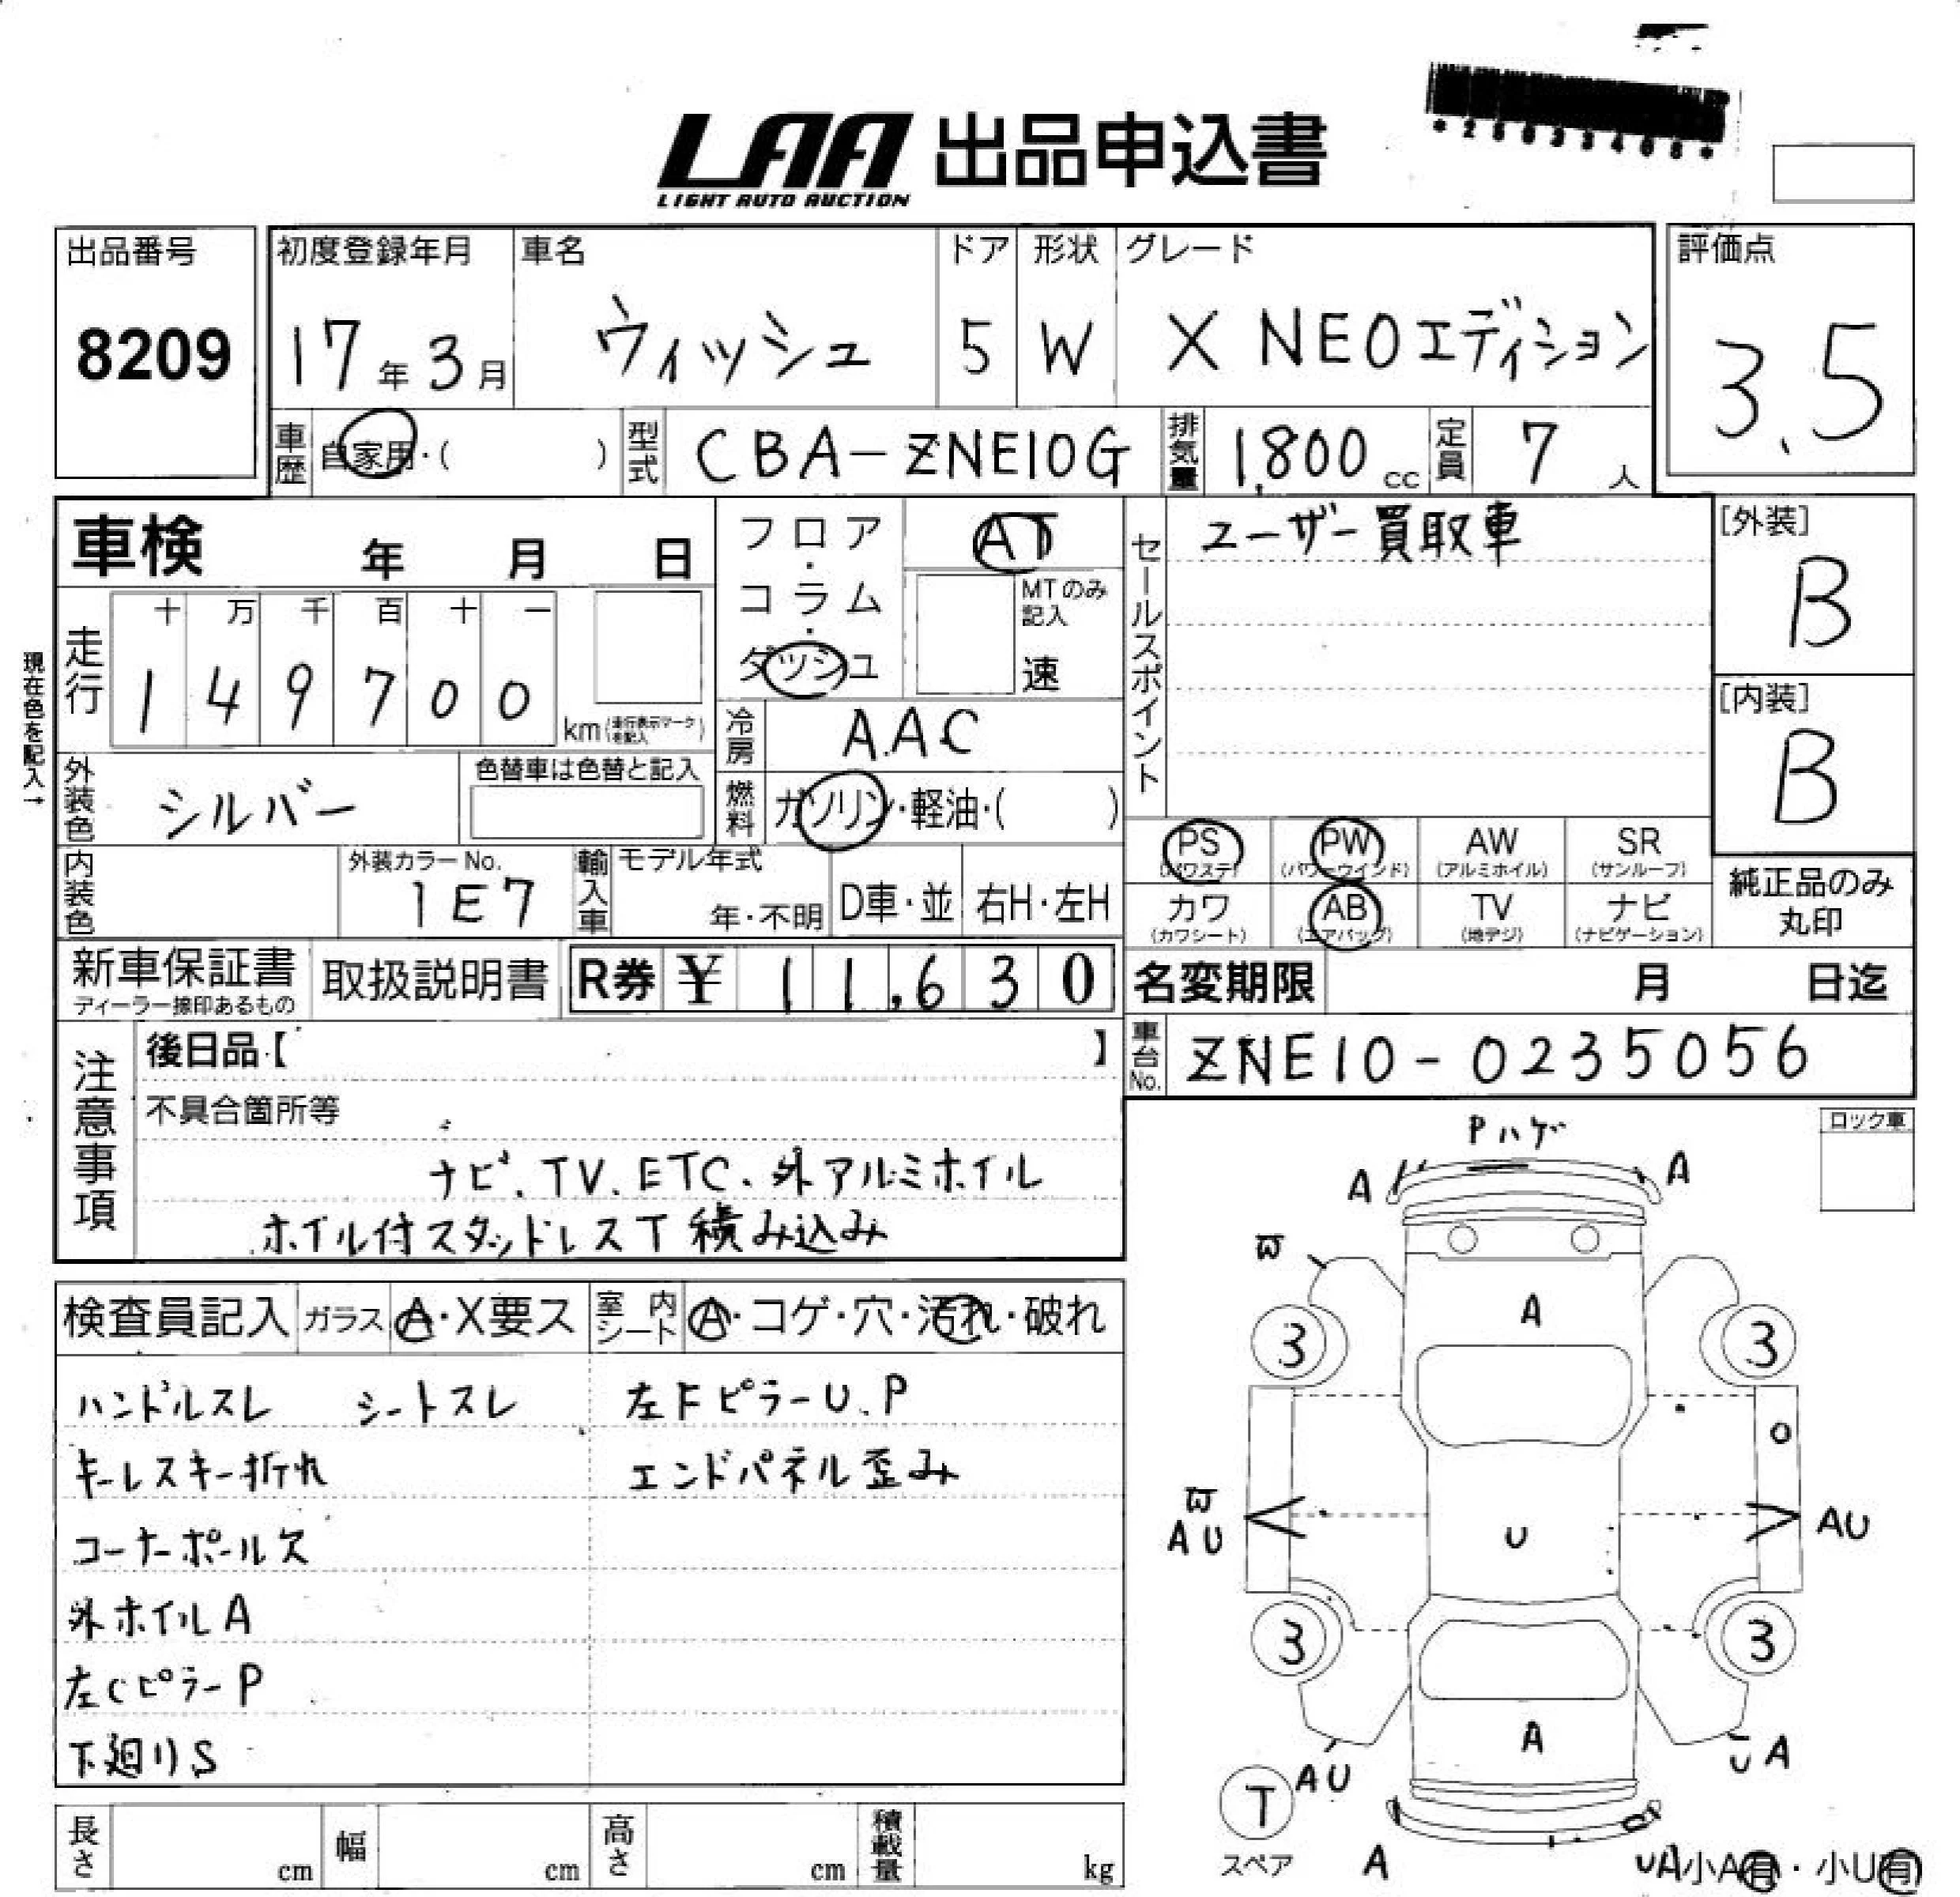 *25033408*
LAA 出品申込書
LIGHT AUTO AUCTION
出品番号
8209
初度登録年月 車名 ドア 形状 グレード
17年3月 ウィッシュ 5 W X NEOエディション
評価点
3.5
車歴 自家用・( ) 型式 CBA-ZNE10G 排気量 1,800cc 定員 7人
車検 年 月 日
フロア・コラム・ダッシュ
AT
MTのみ記入
速
セールスポイント
ユーザー買取車
[外装]
B
[内装]
B
現在色を記入→
走行 十 万 千 百 十 一
1 4 9 7 0 0 km(走行表示マークを記入)
冷房 A.A.C
外装色 シルバー 色替車は色替と記入
燃料 ガソリン・軽油・( )
内装色 外装カラーNo. 1E7
輸入車 モデル年式 年・不明 D車・並 右H・左H
PS (パワステ) PW (パワーウインド) AW (アルミホイル) SR (サンルーフ)
カワ (カワシート) AB (エアバッグ) TV (地デジ) ナビ (ナビゲーション)
純正品のみ丸印
新車保証書 ディーラー捺印あるもの 取扱説明書 R券 ¥11,630
名変期限 月 日迄
車台No. ZNE10-0235056
注意事項
後日品【 】
不具合箇所等
ナビ、TV、ETC、外アルミホイル
ホイル付スタッドレスT積み込み
検査員記入 ガラス A・X要ス 室内シート A・コゲ・穴・汚れ・破れ
ハンドルスレ シートスレ 左FピラーU.P
キーレスキー折れ エンドパネル歪み
コーナーポール欠
外ホイルA
左CピラーP
下廻りS
長さ cm 幅 cm 高さ cm 積載量 kg
ロック車
Pハゲ
A A
A
3 3
U
AU
AU
3 3
A
AU
UA
T
スペア
A
UA
小A有・小U有